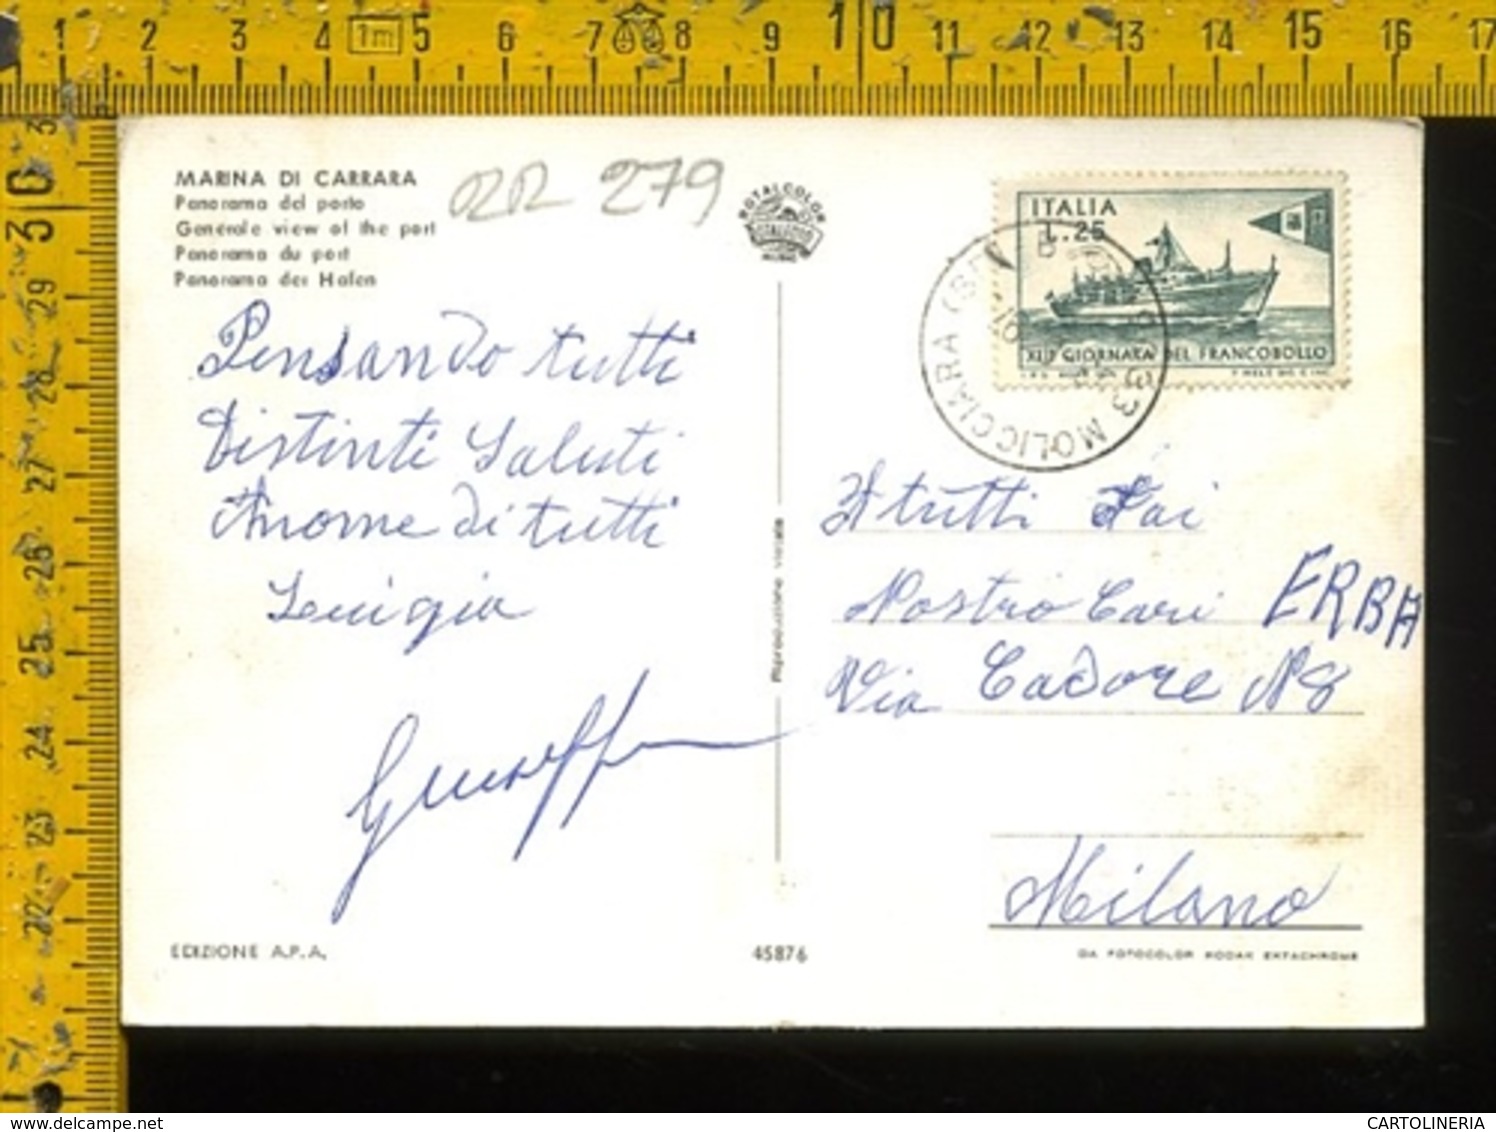 1 2 3 4 1m 5 6 7 8 9 10 11 12 13 14 15 16 17
30 29 28 27 26 25 24 23 22
MARINA DI CARRARA
Panorama del porto
Generale view of the port
Panorama du port
Panorama der Hafen
RR 279
ROTALCOLOR
ITALIA
L. 25
XIII GIORNATA DEL FRANCOBOLLO
MOLICCIARA (SP)
Pensando tutti
Distinti Saluti
Anome di tutti
Luigia
Giuseppe
A tutti Voi
Nostro Cari ERBA
Via Cadore N8
Milano
Riproduzione vietata
EDIZIONE A.P.A.
45876
DA FOTOCOLOR KODAK EKTACHROME
delcampe.net
CARTOLINERIA